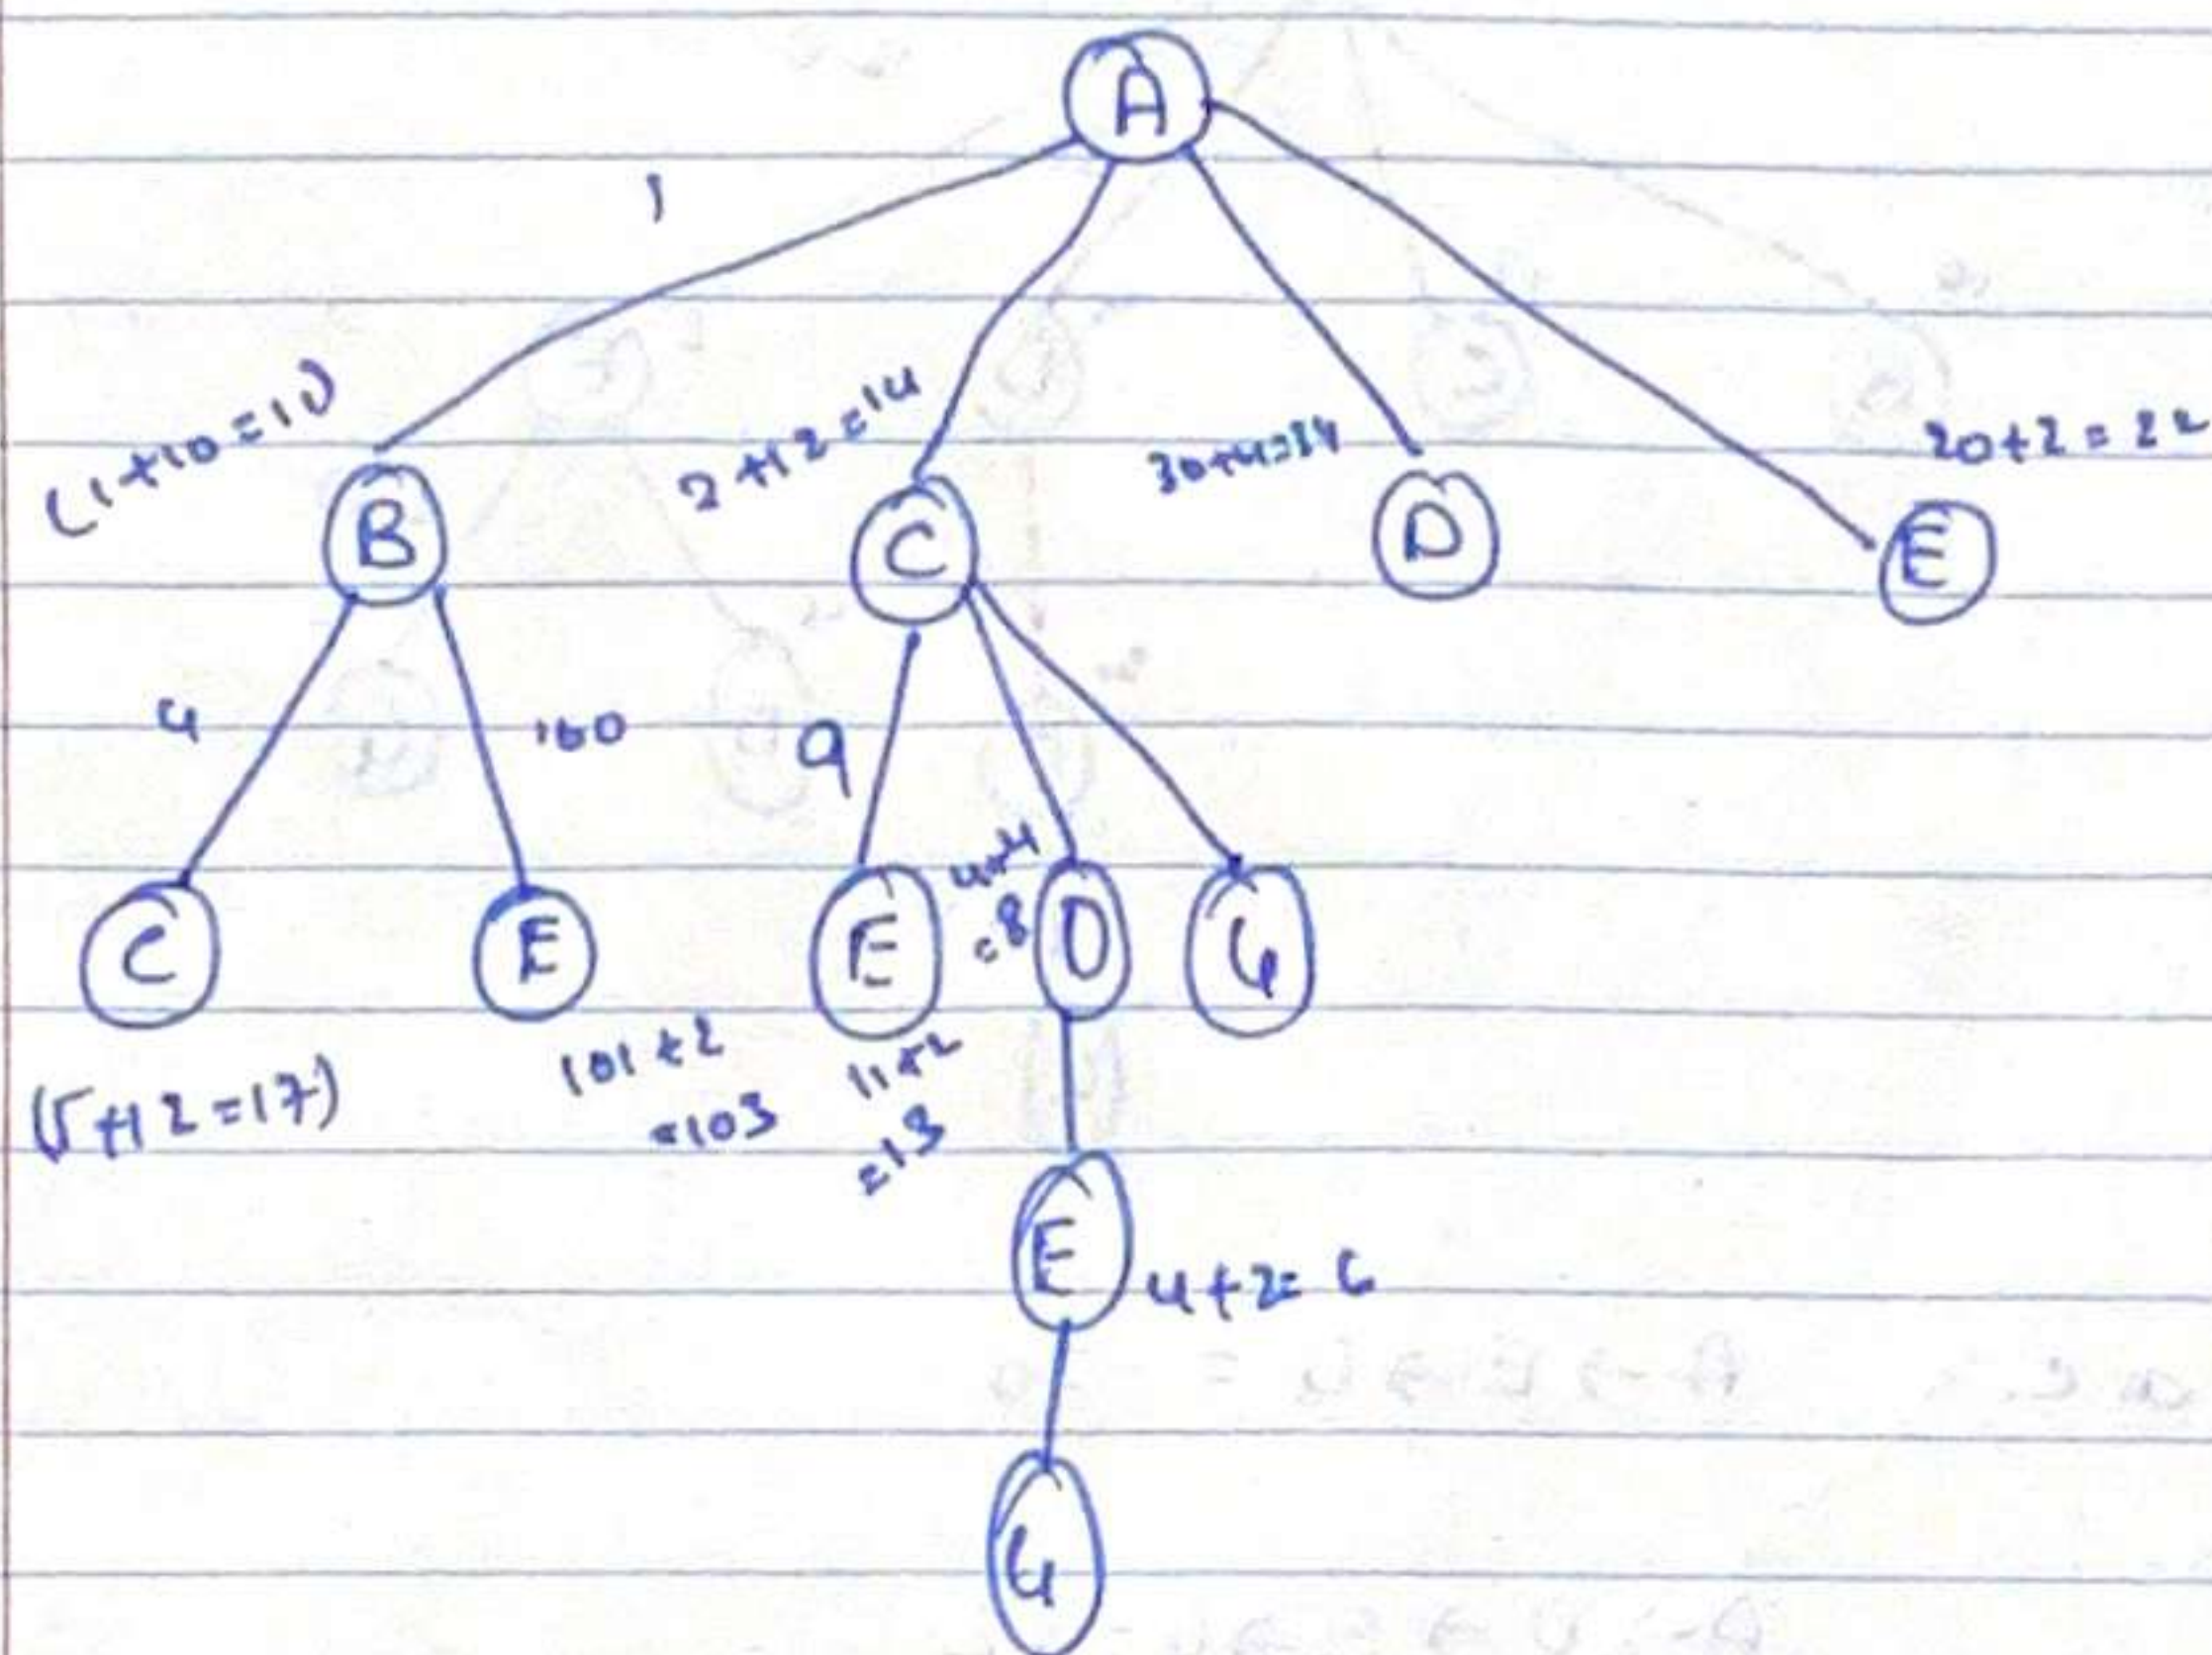 A
1
(1+10=11)
2+12=14
30+4=34
20+2=22
B
C
D
E
4
100
9
4+4
=8
C
E
E
D
G
(5+12=17)
101+2
=103
11+2
=13
E
4+2=6
G